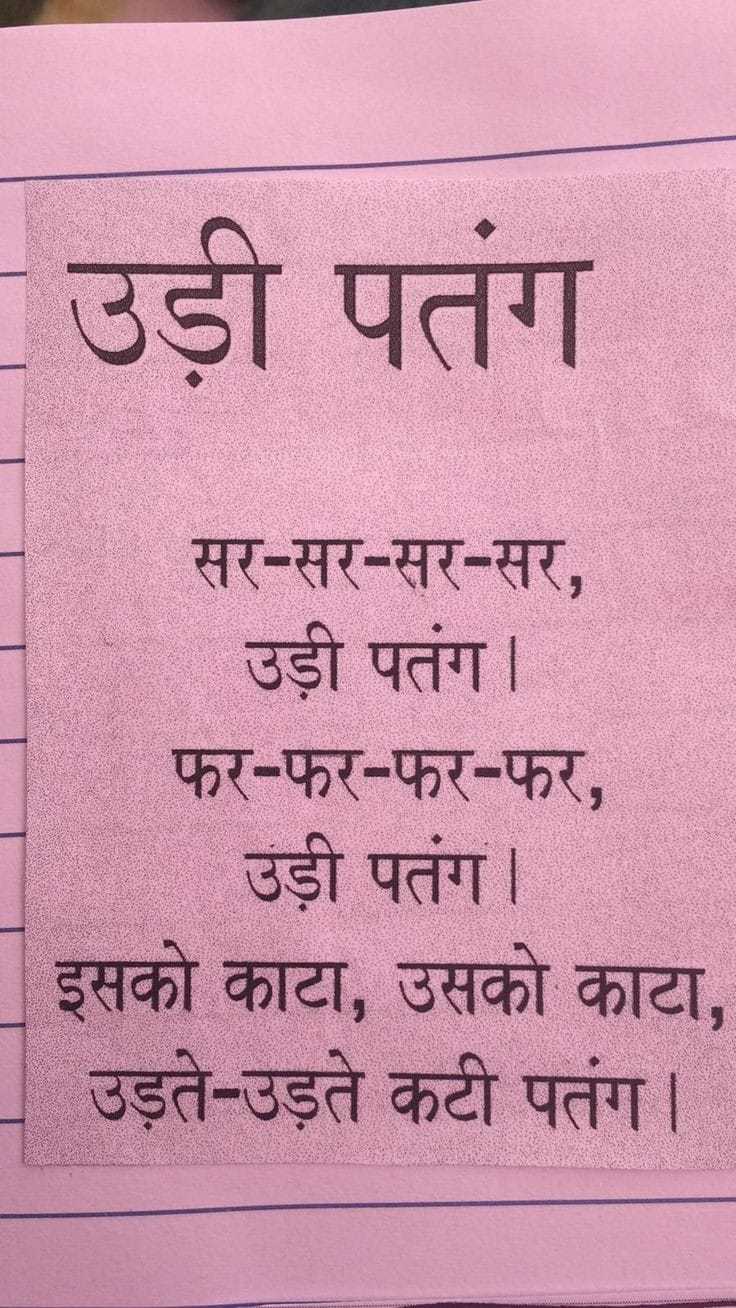 उड़ी पतंग
सर-सर-सर-सर,
उड़ी पतंग।
फर-फर-फर-फर,
उड़ी पतंग।
इसको काटा, उसको काटा,
उड़ते-उड़ते कटी पतंग।